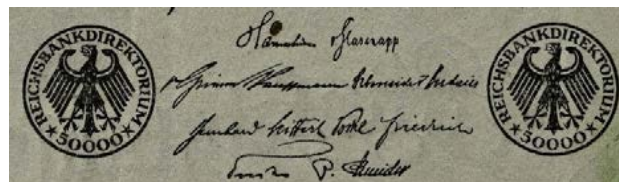 REICHSBANKDIREKTORIUM
★ 50000 ★
Glasenapp
Grimm Kauffmann Schneider Budczies
Bernhard Seiffert Vocke Friedrich
P. Schneider
REICHSBANKDIREKTORIUM
★ 50000 ★